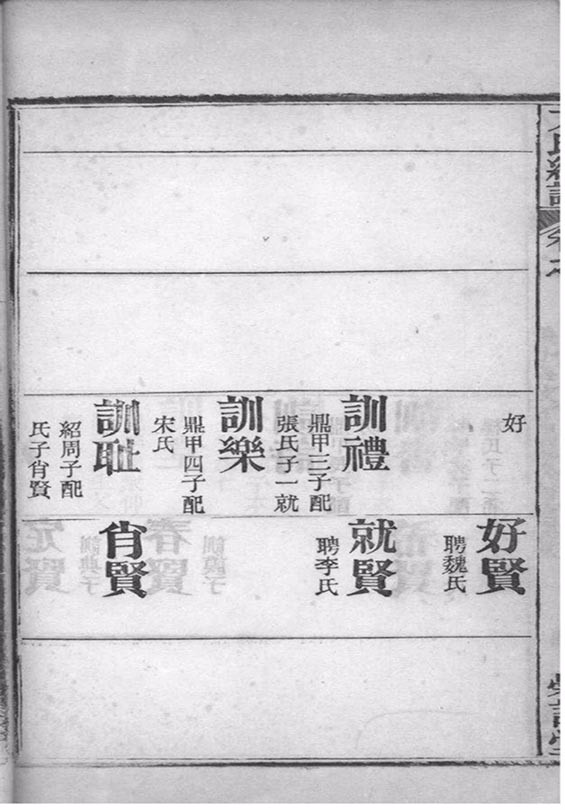 好
訓禮
鼎甲三子配
張氏子一就
訓樂
鼎甲四子配
宋氏
訓耻
紹周子配
氏子肖賢
好賢
聘魏氏
就賢
聘李氏
肖賢